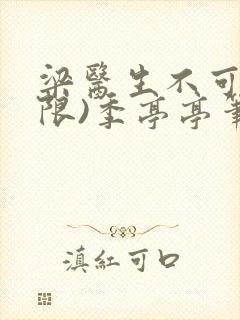 梁醫生不可
限)季亭亭筆
滇紅可口